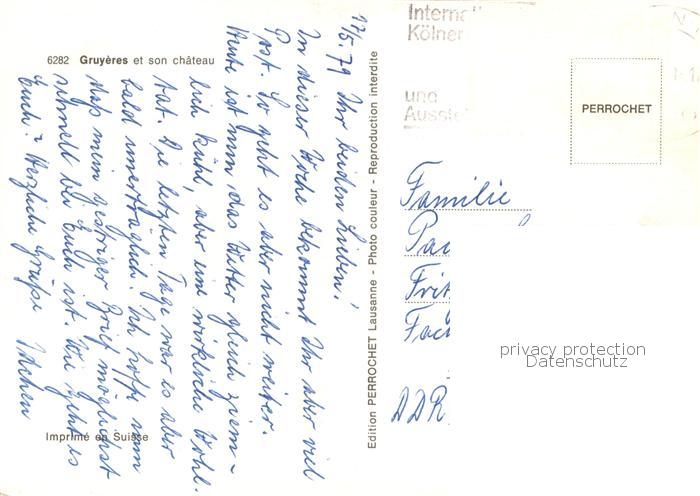 6282 Gruyères et son château
17/5.79 Ihr beiden Lieben!
In dieser Woche bekommt Ihr aber viel
Post. So geht es aber nicht weiter.
Heute ist nun das Wetter gleich ziem-
lich kühl, aber eine wirkliche Wohl-
tat. Die letzten Tage war es aber
bald unerträglich. Ich hoffe nun
daß mein gestriger Brief möglichst
schnell bei Euch ist. Wie geht es
Euch? Herzliche Grüße
Imprimé en Suisse
Edition PERROCHET Lausanne - Photo couleur - Reproduction interdite
Intern
Kölner
und
Ausste
PERROCHET
Familie
Pa
Fri
DDR
privacy protection
Datenschutz